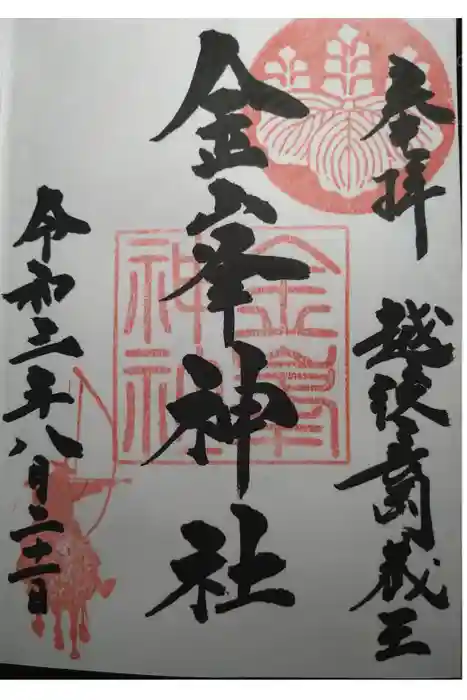 奉拝
越後之国蔵王
金峯神社
金峯
神社
令和三年八月二十一日